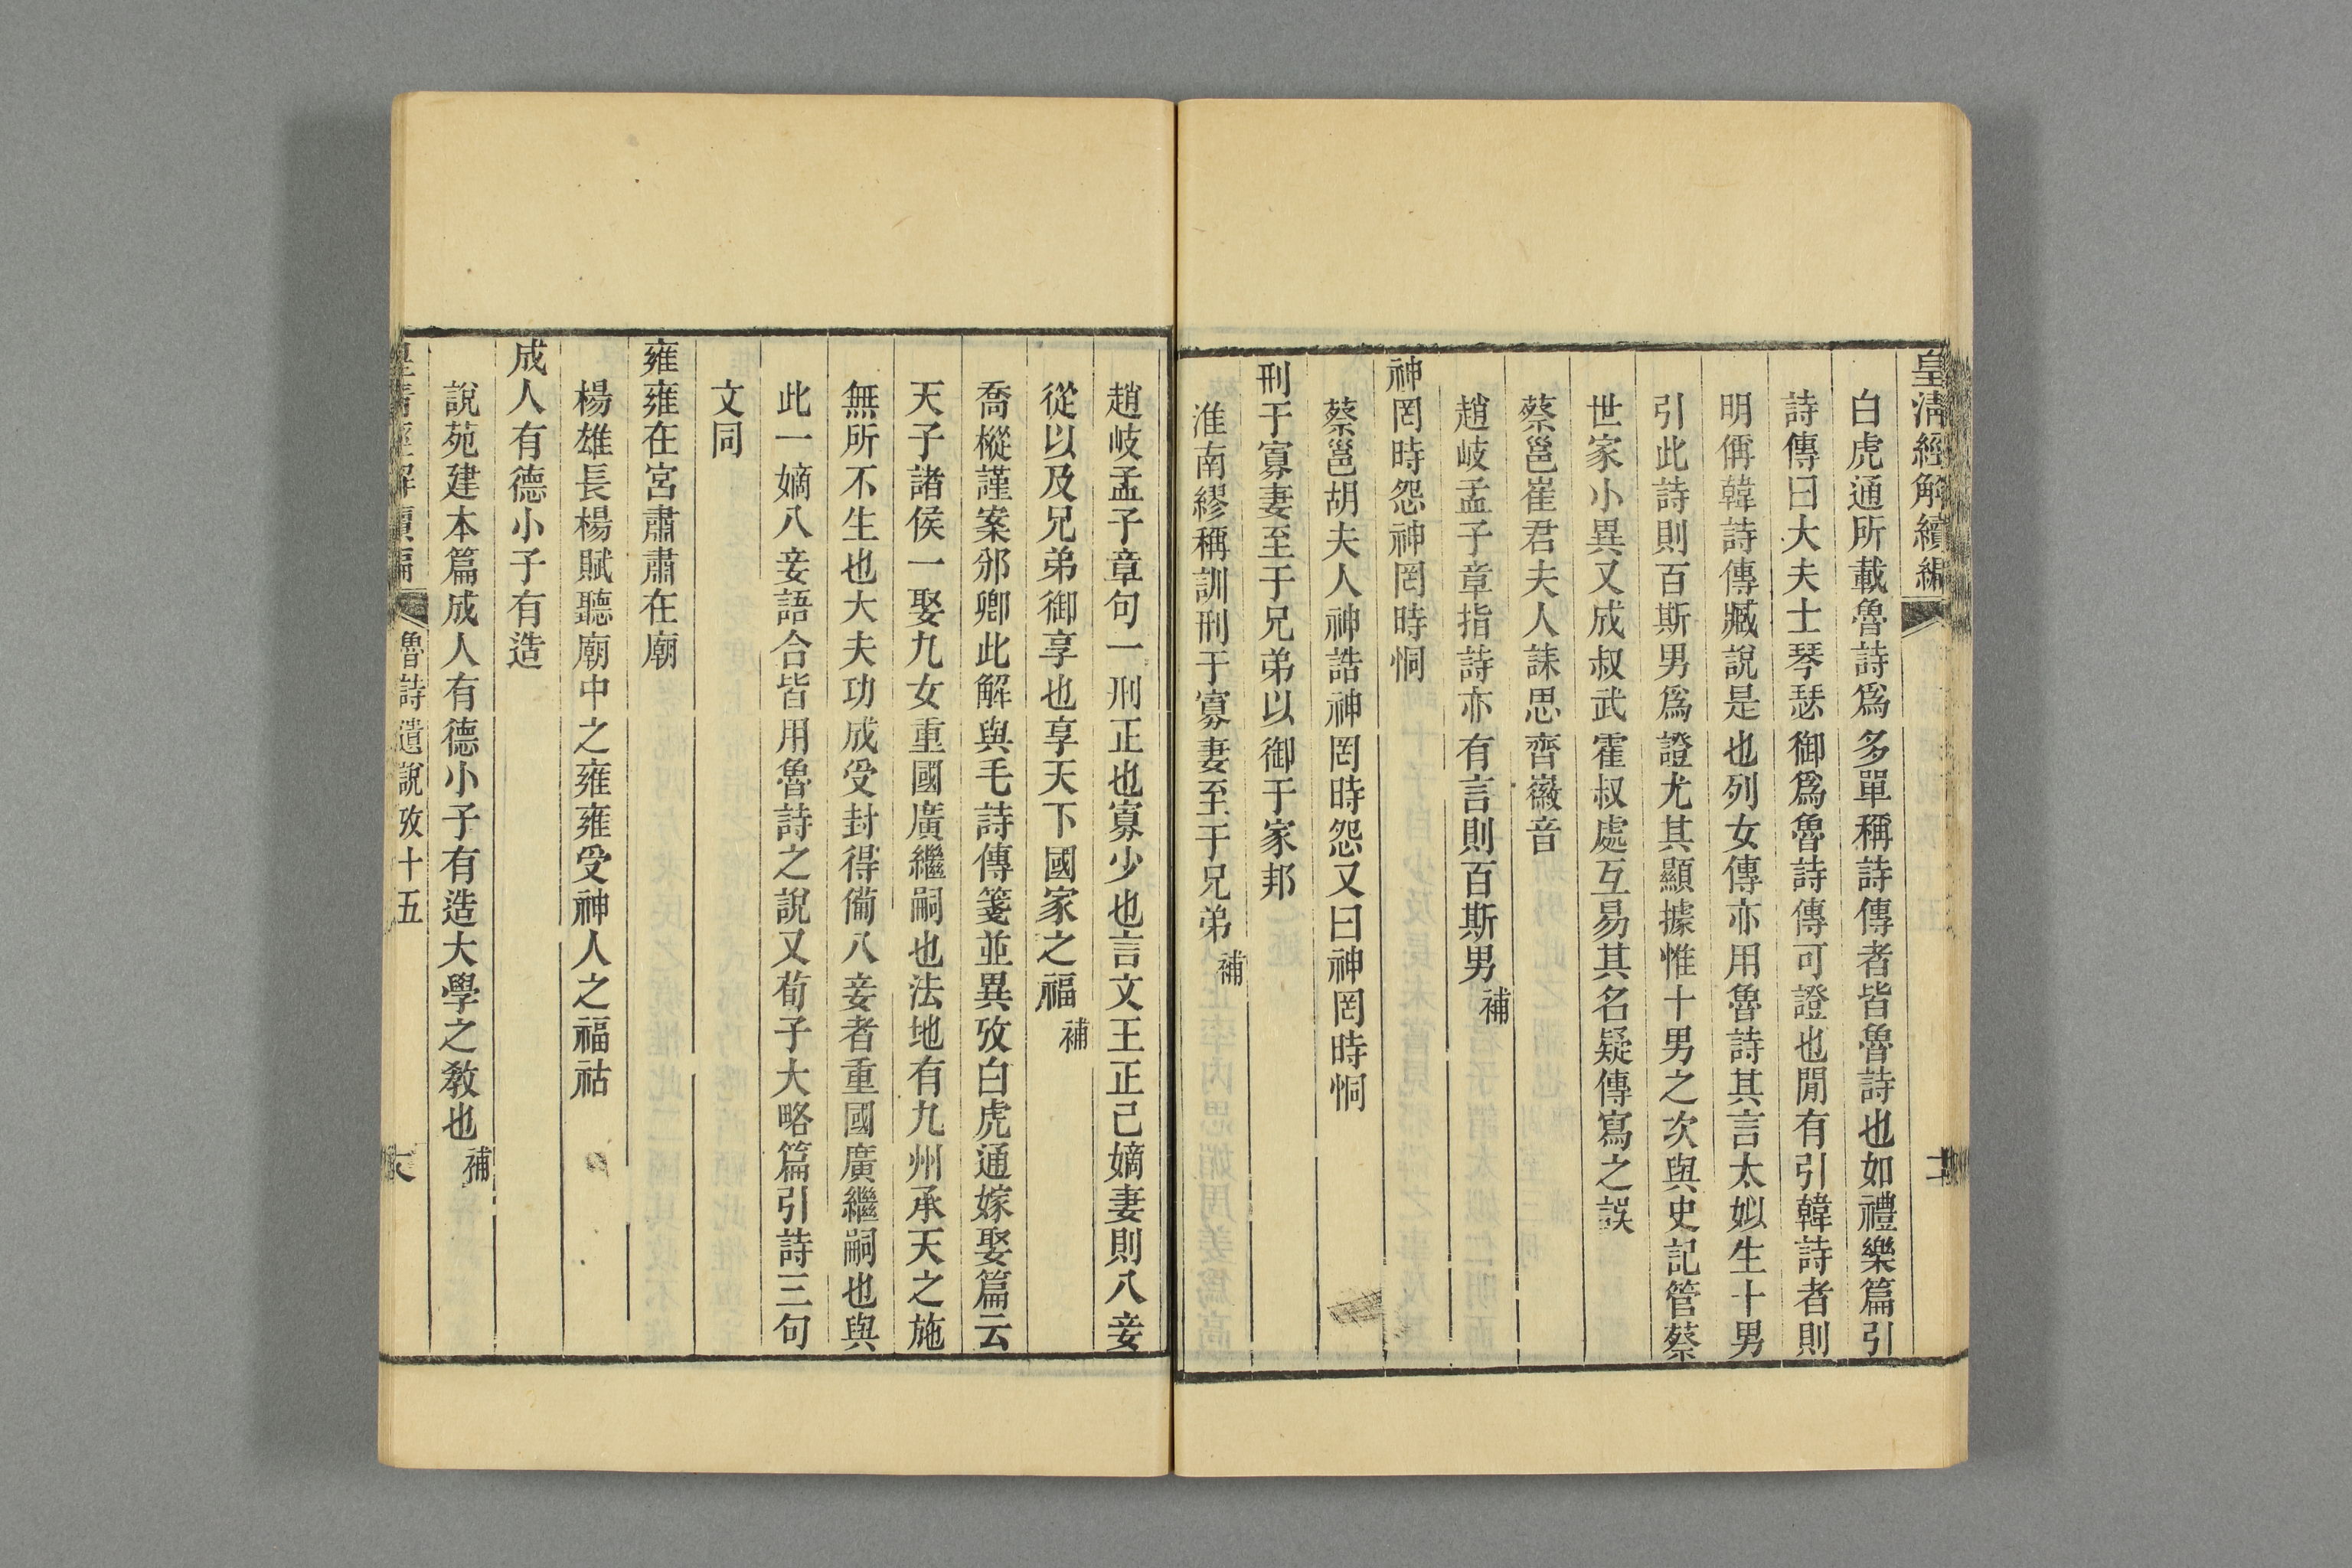 皇清經解續編
白虎通所載魯詩爲多單稱詩傳者皆魯詩也如禮樂篇引
詩傳曰大夫士琴瑟御爲魯詩傳可證也閒有引韓詩者則
明偁韓詩傳臧說是也列女傳亦用魯詩其言太姒生十男
引此詩則百斯男爲證尤其顯據惟十男之次與史記管蔡
世家小異又成叔武霍叔處互易其名疑傳寫之誤
蔡邕崔君夫人誄思齊徽音
趙岐孟子章指詩亦有言則百斯男補
神罔時怨神罔時恫
蔡邕胡夫人神誥神罔時怨又曰神罔時恫
刑于寡妻至于兄弟以御于家邦
淮南繆稱訓刑于寡妻至于兄弟補
趙岐孟子章句一刑正也寡少也言文王正己嫡妻則八妾
從以及兄弟御享也享天下國家之福補
喬樅謹案邠卿此解與毛詩傳箋並異攷白虎通嫁娶篇云
天子諸侯一娶九女重國廣繼嗣也法地有九州承天之施
無所不生也大夫功成受封得備八妾者重國廣繼嗣也與
此一嫡八妾語合皆用魯詩之說又荀子大略篇引詩三句
文同
雍雍在宮肅肅在廟
楊雄長楊賦聽廟中之雍雍受神人之福祜
成人有德小子有造
說苑建本篇成人有德小子有造大學之教也補
皇清經解續編 魯詩遺說攷十五